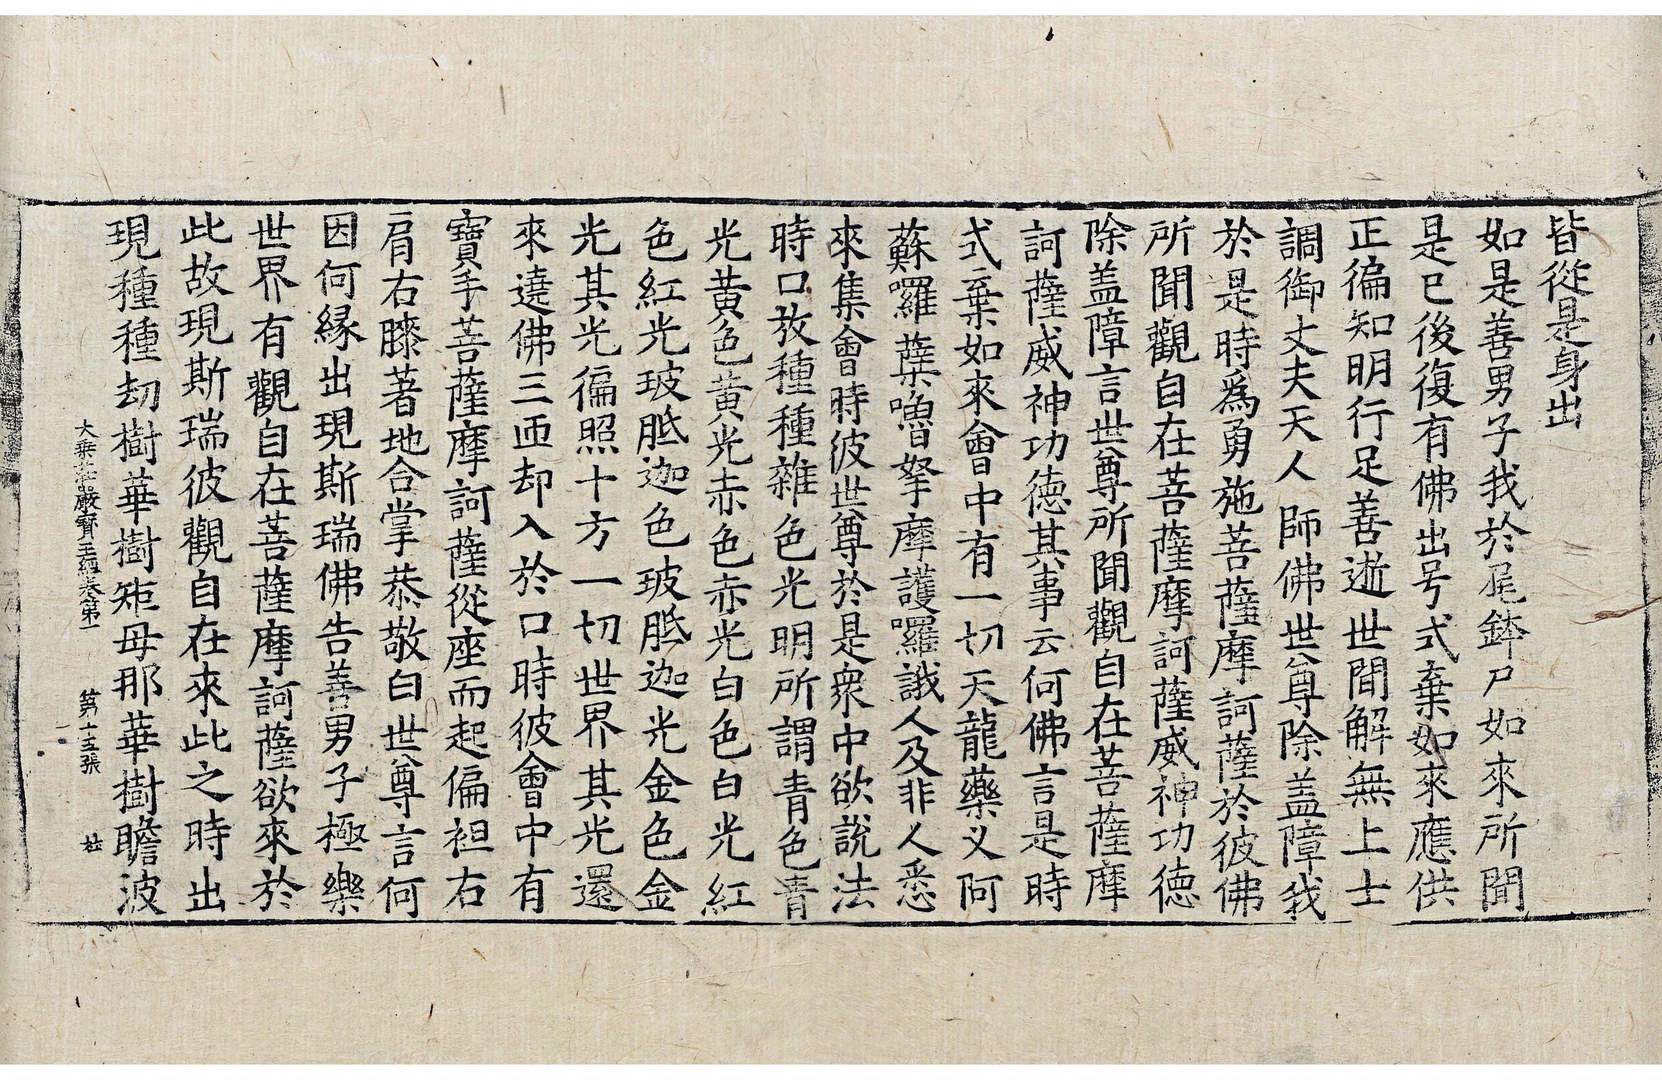 皆從是身出
如是善男子我於尾鉢尸如來所聞
是已後復有佛出号式棄如來應供
正徧知明行足善逝世間解無上士
調御丈夫天人師佛世尊除盖障我
於是時爲勇施菩薩摩訶薩於彼佛
所聞觀自在菩薩摩訶薩威神功德
除盖障言世尊所聞觀自在菩薩摩
訶薩威神功德其事云何佛言是時
式棄如來會中有一切天龍藥叉阿
蘇囉蘖嚕拏摩護囉誐人及非人悉
來集會時彼世尊於是衆中欲說法
時口放種種雜色光明所謂青色青
光黃色黃光赤色赤光白色白光紅
色紅光玻胝迦色玻胝迦光金色金
光其光徧照十方一切世界其光還
來遶佛三匝却入於口時彼會中有
寶手菩薩摩訶薩從座而起偏袒右
肩右膝著地合掌恭敬白世尊言何
因何緣出現斯瑞佛告善男子極樂
世界有觀自在菩薩摩訶薩欲來於
此故現斯瑞彼觀自在來此之時出
現種種劫樹華樹矩母那華樹瞻波
大乗莊嚴寶王經卷第一 第十五張